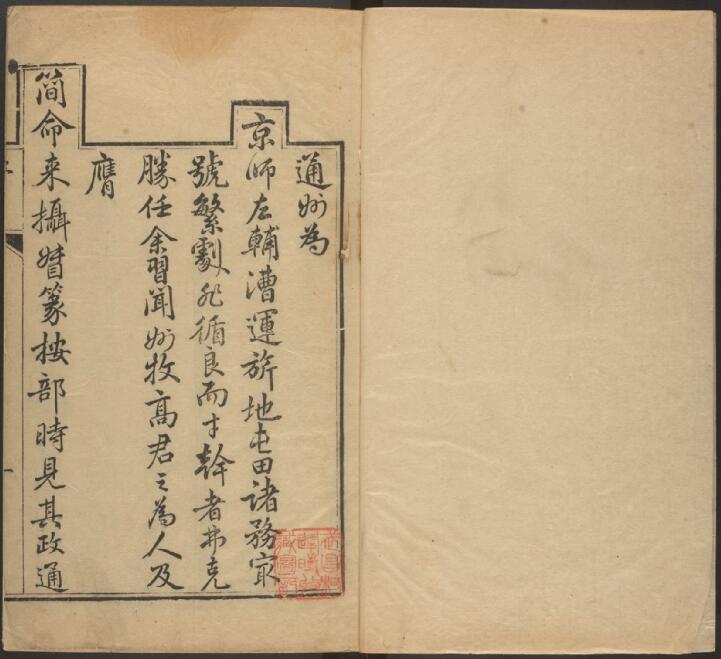 通州為
京師左輔漕運旂地屯田諸務冣
號繁劇非循良而才幹者弗克
勝任余習聞州牧高君之為人及
膺
簡命來攝督篆按部時見其政通
武昌柯
逢時收
藏圖記